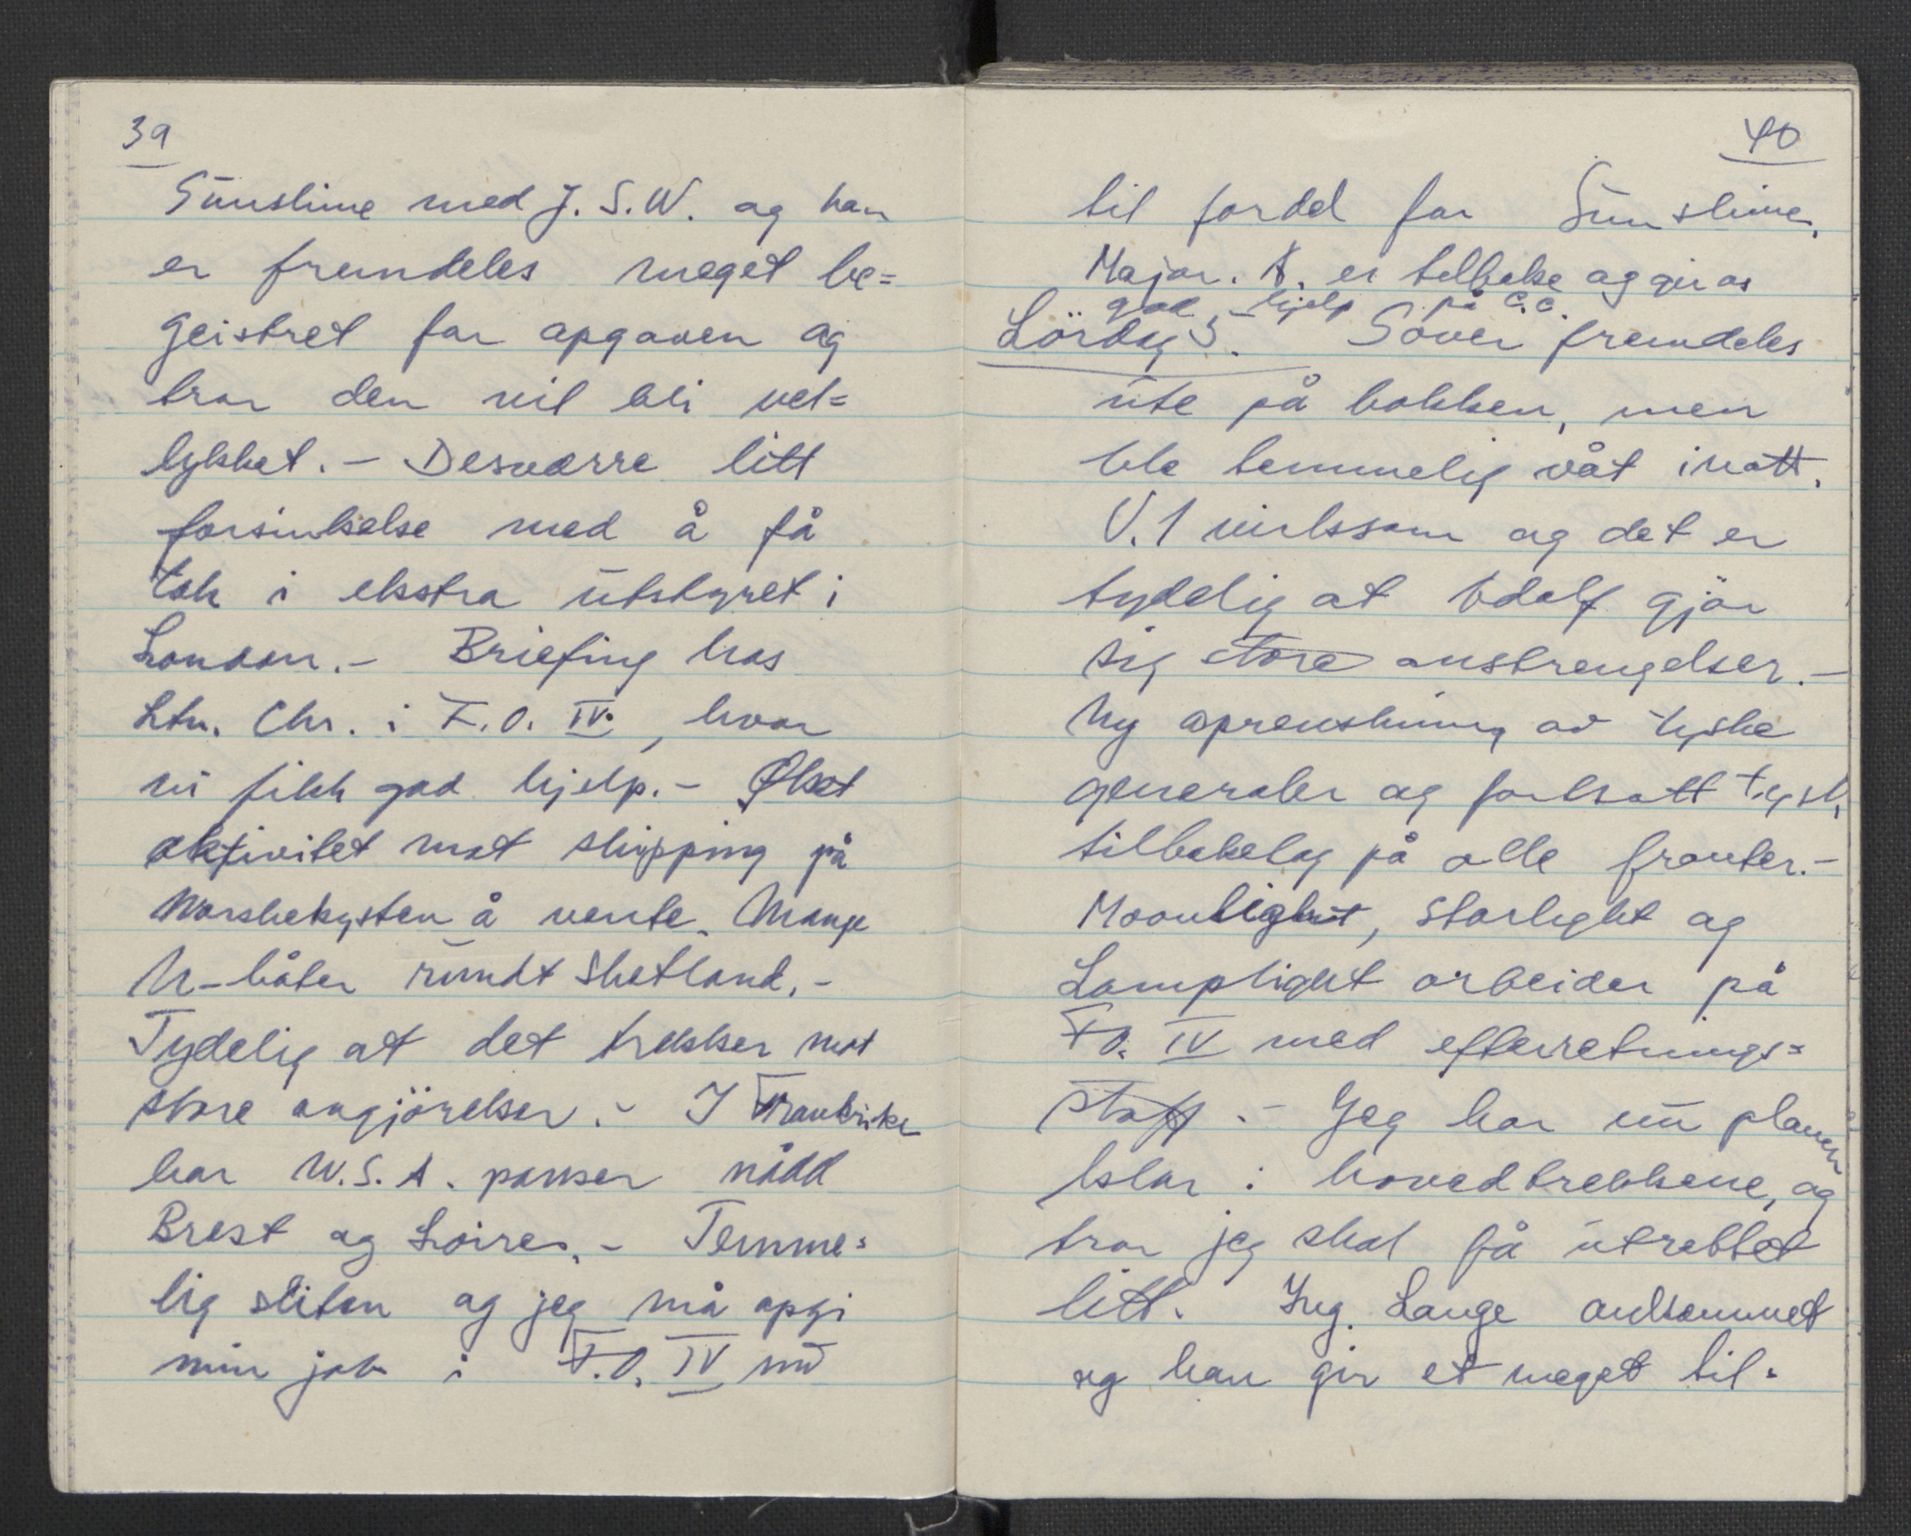 39
Sunshine med J. S. W. og han
er fremdeles meget be=
geistret for opgaven og
tror den vil bli vel=
lykket. – Desværre litt
forsinkelse med å få
tak i ekstra utstyret i
London. – Briefing hos
Ltn. Chr. i F.O. IV., hvor
vi fikk god hjelp. – Øket
aktivitet mot shipping på
Norskekysten å vente. Mange
U-båter rundt Shetland. –
Tydelig at det trekker mot
store avgjörelser. – I Frankrike
har U.S.A. panser nådd
Brest og Loire. – Temme=
lig sliten og jeg må opgi
min job i F.O. IV nu
40
til fordel for Sunshine.
Major. A. er tilbake og gir os
god hjelp på C.C.
Lördag 5. Sover fremdeles
ute på bakken, men
ble temmelig våt inatt.
V.1 virksom og det er
tydelig at Adolf gjör
sig store anstrengelser. –
Ny oprenskning av tyske
generaler og fortsatt tysk
tilbakelag på alle fronter. –
Moonlight, Starlight og
Lamplight arbeider på
F.O. IV med efterretnings=
staff. – Jeg har nu planen
klar i hovedtrekkene, og
tror jeg skal få utrettet
litt. Ing. Lange ankommet
og han gir et meget til=